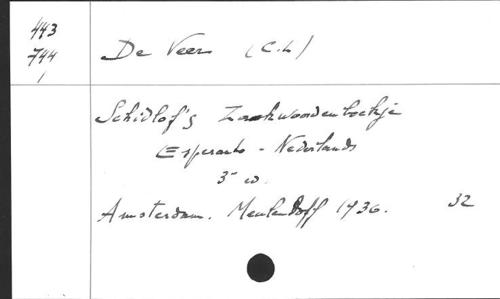 443
744
1
De Veer (C.L)
Schidlof's Zakwoordenboekje
Esperanto - Nederlands
3e ed.
Amsterdam. Meulendoff 1936. 32